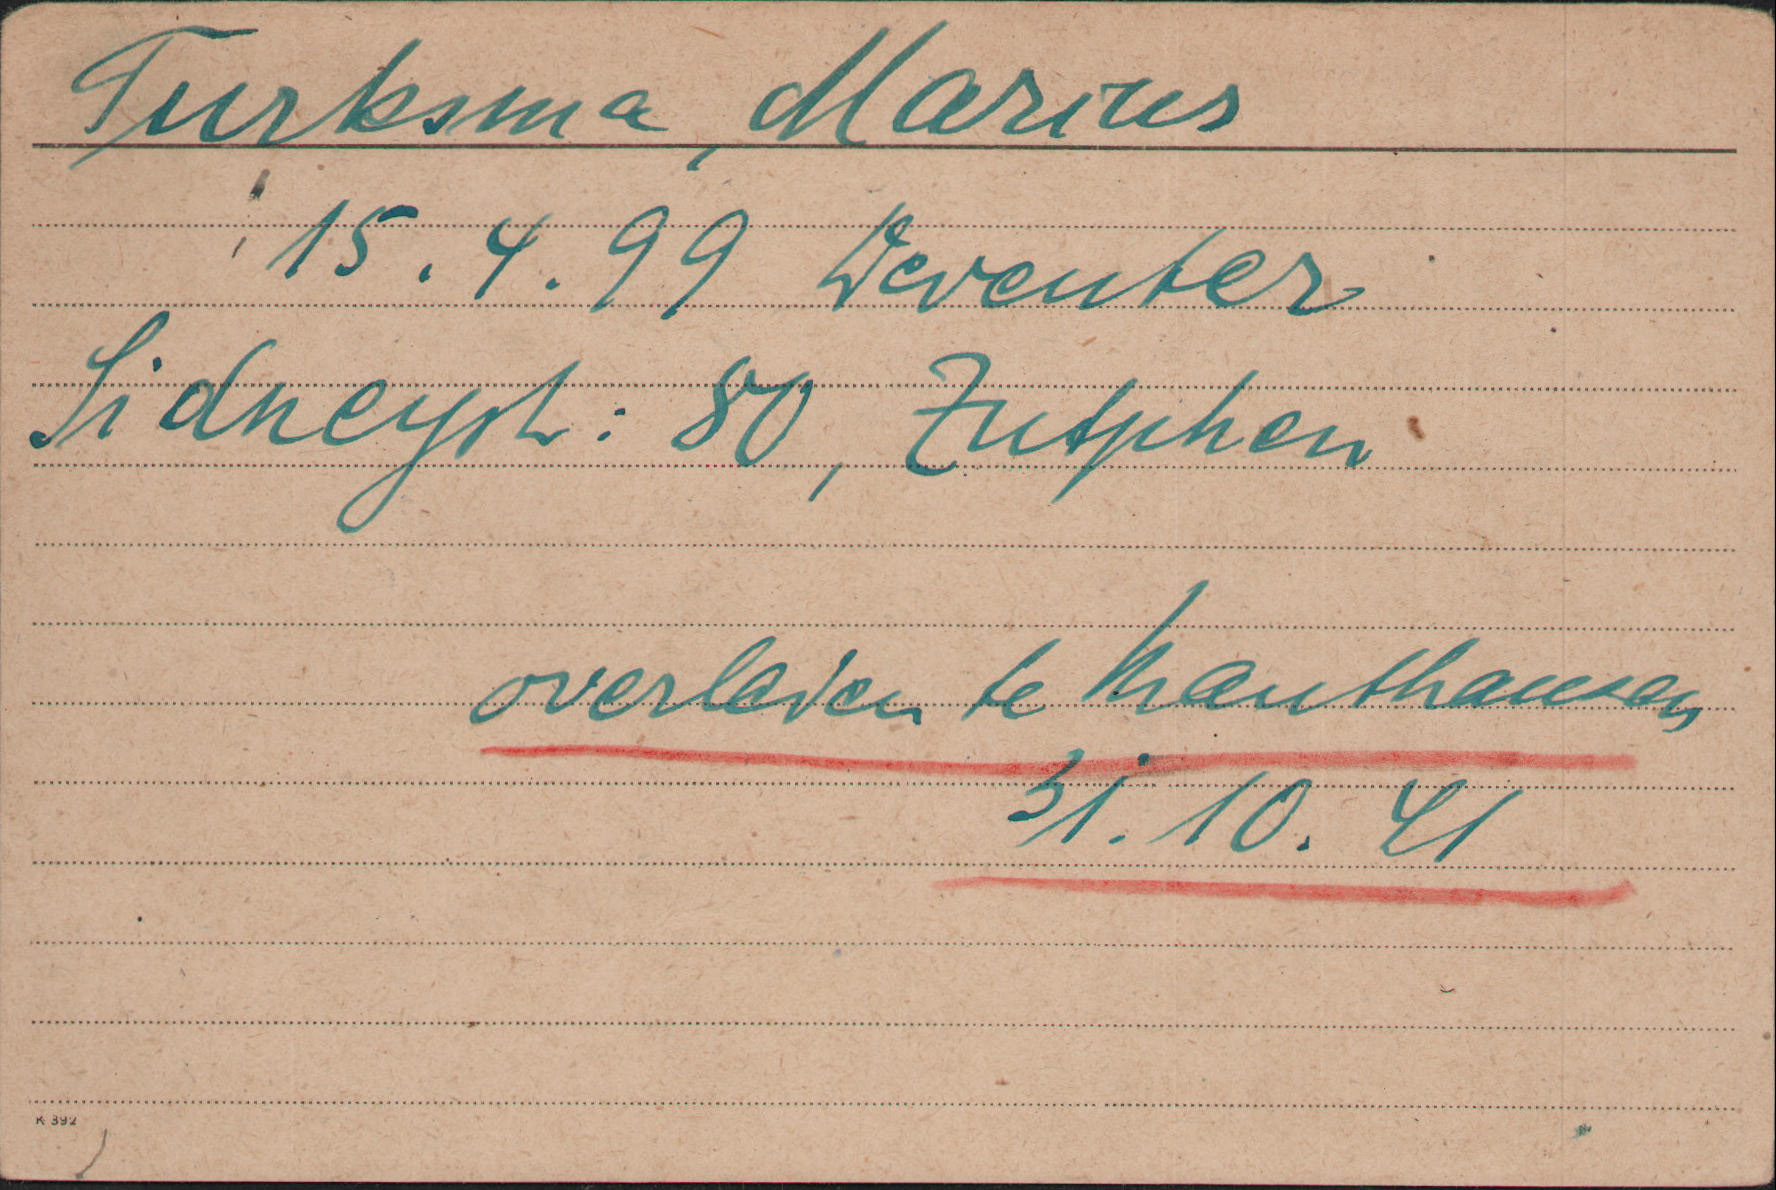 Turksma, Marius
15.4.99 Deventer
Sidneystr: 80, Zutphen
overleden te Mauthausen
31.10.41
K 392